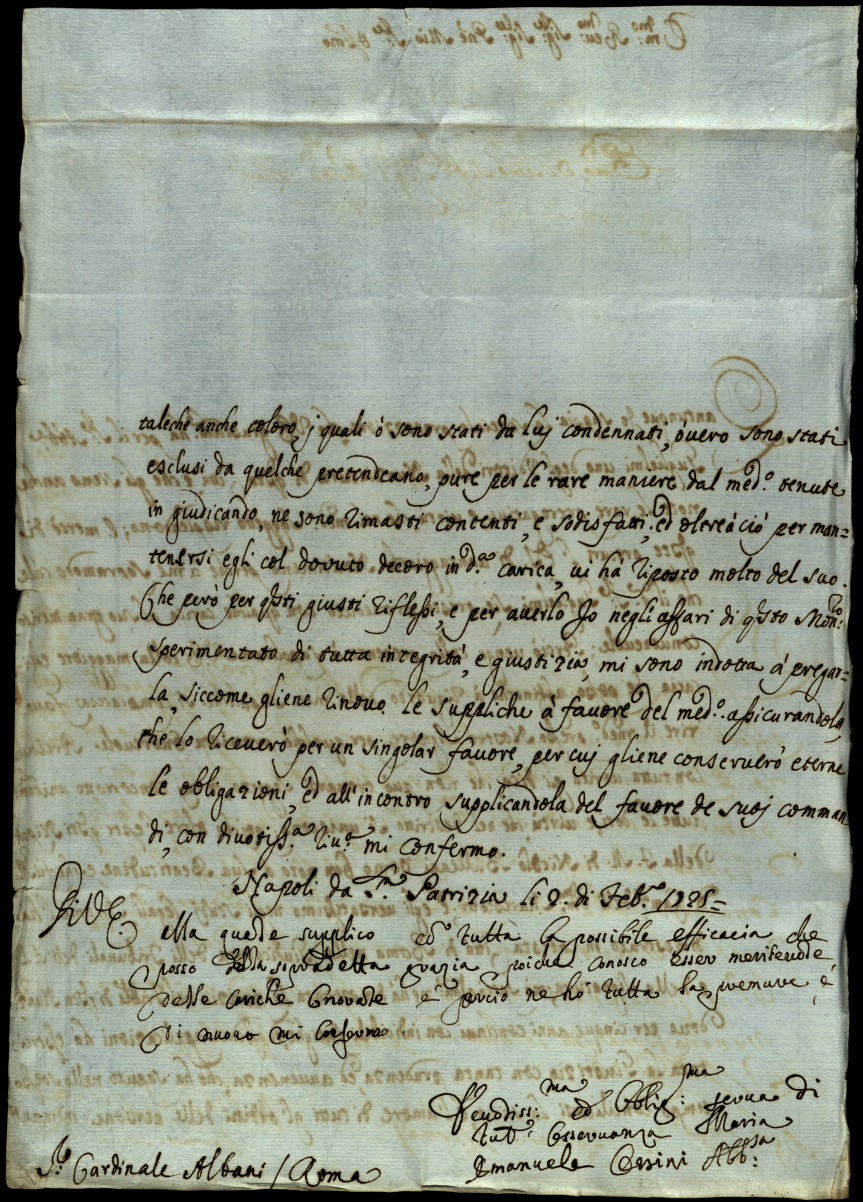 taleche anche coloro, j quali ò sono stati da luj condennati, òuero sono stati
esclusi da quelche pretendeano, pure per le rare maniere dal med.º tenute
in giudicando, ne sono rimasti contenti, e sodisfatti, ed oltreàciò per man=
tenersi egli col dovuto decoro in d.ª carica, ui hà riposto molto del suo.
Che però per q̃sti giusti riflessi, e per auerlo Jo negli affari di q̃sto Mon:ro
sperimentato di tutta integrità, e giustizia, mi sono indotta à pregar=
la, siccome gliene rinovo le suppliche à favore del med.º, assicurandola,
che lo riceverò per un singolar favore, per cuj gliene conseruerò eterne
le obligazioni, ed all'incontro supplicandola del favore de suoj comman
di, con divotiss.ª riu.ª mi confermo.
Napoli da S.ª Patrizia li 2. di Feb.º 1725=
Di V. E.
alla quale supplico con tutta la possibile efficacia che
posso della sopradetta grazia poiche conosco esser meriteuole
delle cariche e perciò ne hò tutta la premura è
di nuouo mi confermo
Deuotiss:ma ed Oblig:ma serua di
tutt.ª Osseruanza Maria
Emanuele Orsini Abb:sa
S.r Cardinale Albani / Roma